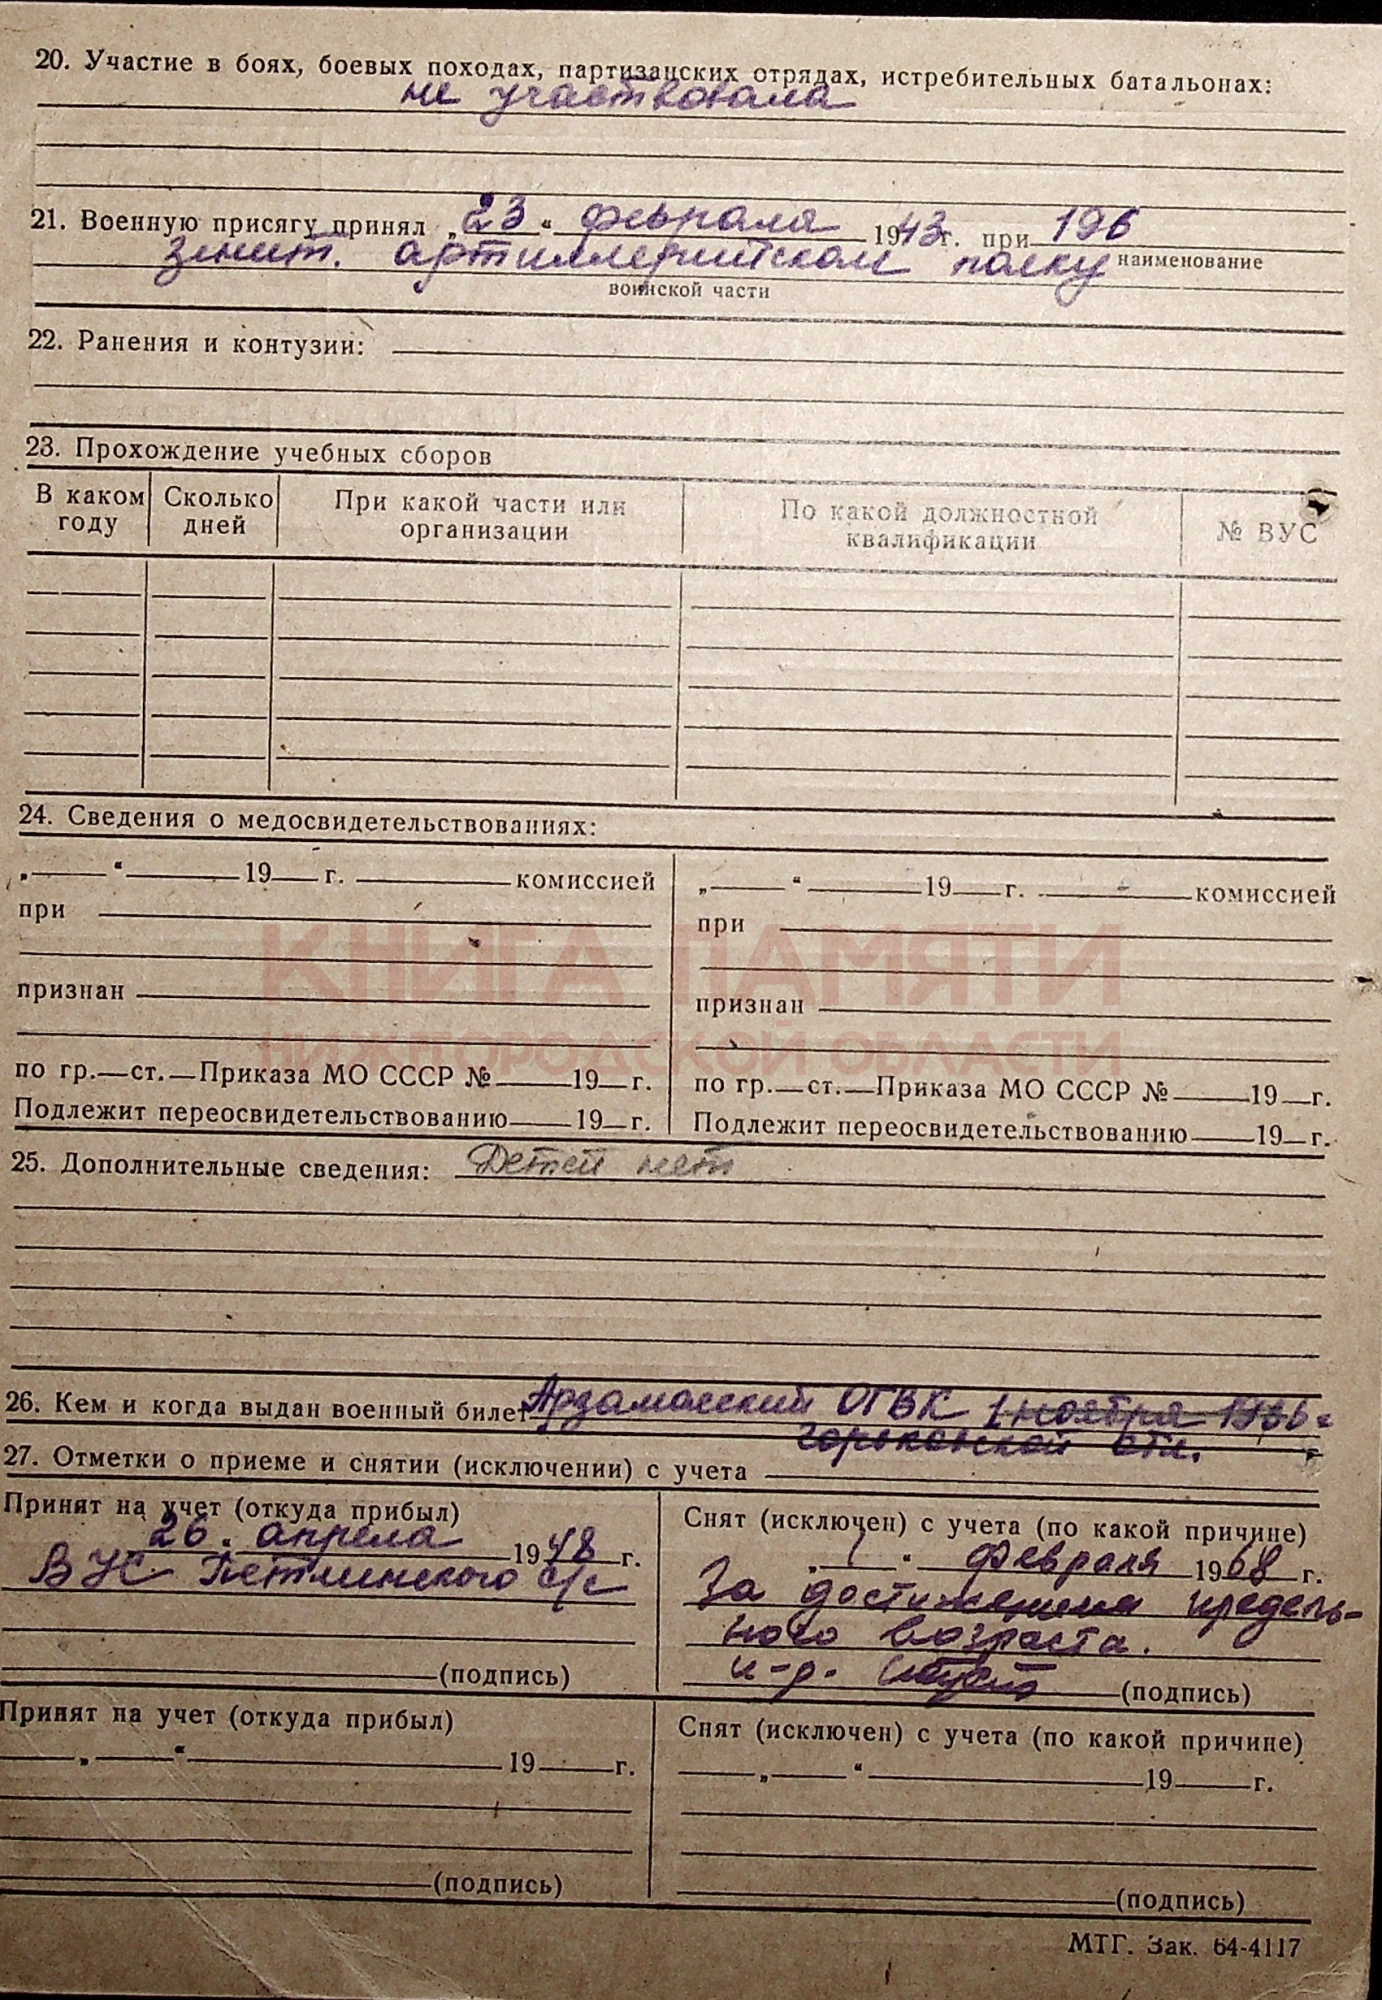 20. Участие в боях, боевых походах, партизанских отрядах, истребительных батальонах:
не участвовала
21. Военную присягу принял „23“ февраля 1943 г. при 196
зенит. артиллерийском полку наименование
воинской части
22. Ранения и контузии:
23. Прохождение учебных сборов
В каком году Сколько дней При какой части или организации По какой должностной квалификации № ВУС
24. Сведения о медосвидетельствованиях:
„ “ 19 г. комиссией
при
признан
по гр. ст. Приказа МО СССР № 19 г.
Подлежит переосвидетельствованию 19 г.
„ “ 19 г. комиссией
при
признан
по гр. ст. Приказа МО СССР № 19 г.
Подлежит переосвидетельствованию 19 г.
КНИГА ПАМЯТИ
НИЖЕГОРОДСКОЙ ОБЛАСТИ
25. Дополнительные сведения: Детей нет
26. Кем и когда выдан военный билет Арзамасский ОГВК 1 ноября 1966 г
Горьковской обл. г
27. Отметки о приеме и снятии (исключении) с учета
Принят на учет (откуда прибыл)
26 “ апреля 1948 г.
ВУС с/с
(подпись)
Снят (исключен) с учета (по какой причине)
„ “ февраля 1968 г.
За достижением предель-
ного возраста.
(подпись)
Принят на учет (откуда прибыл)
„ “ 19 г.
(подпись)
Снят (исключен) с учета (по какой причине)
„ “ 19 г.
(подпись)
МТГ. Зак. 64-4117